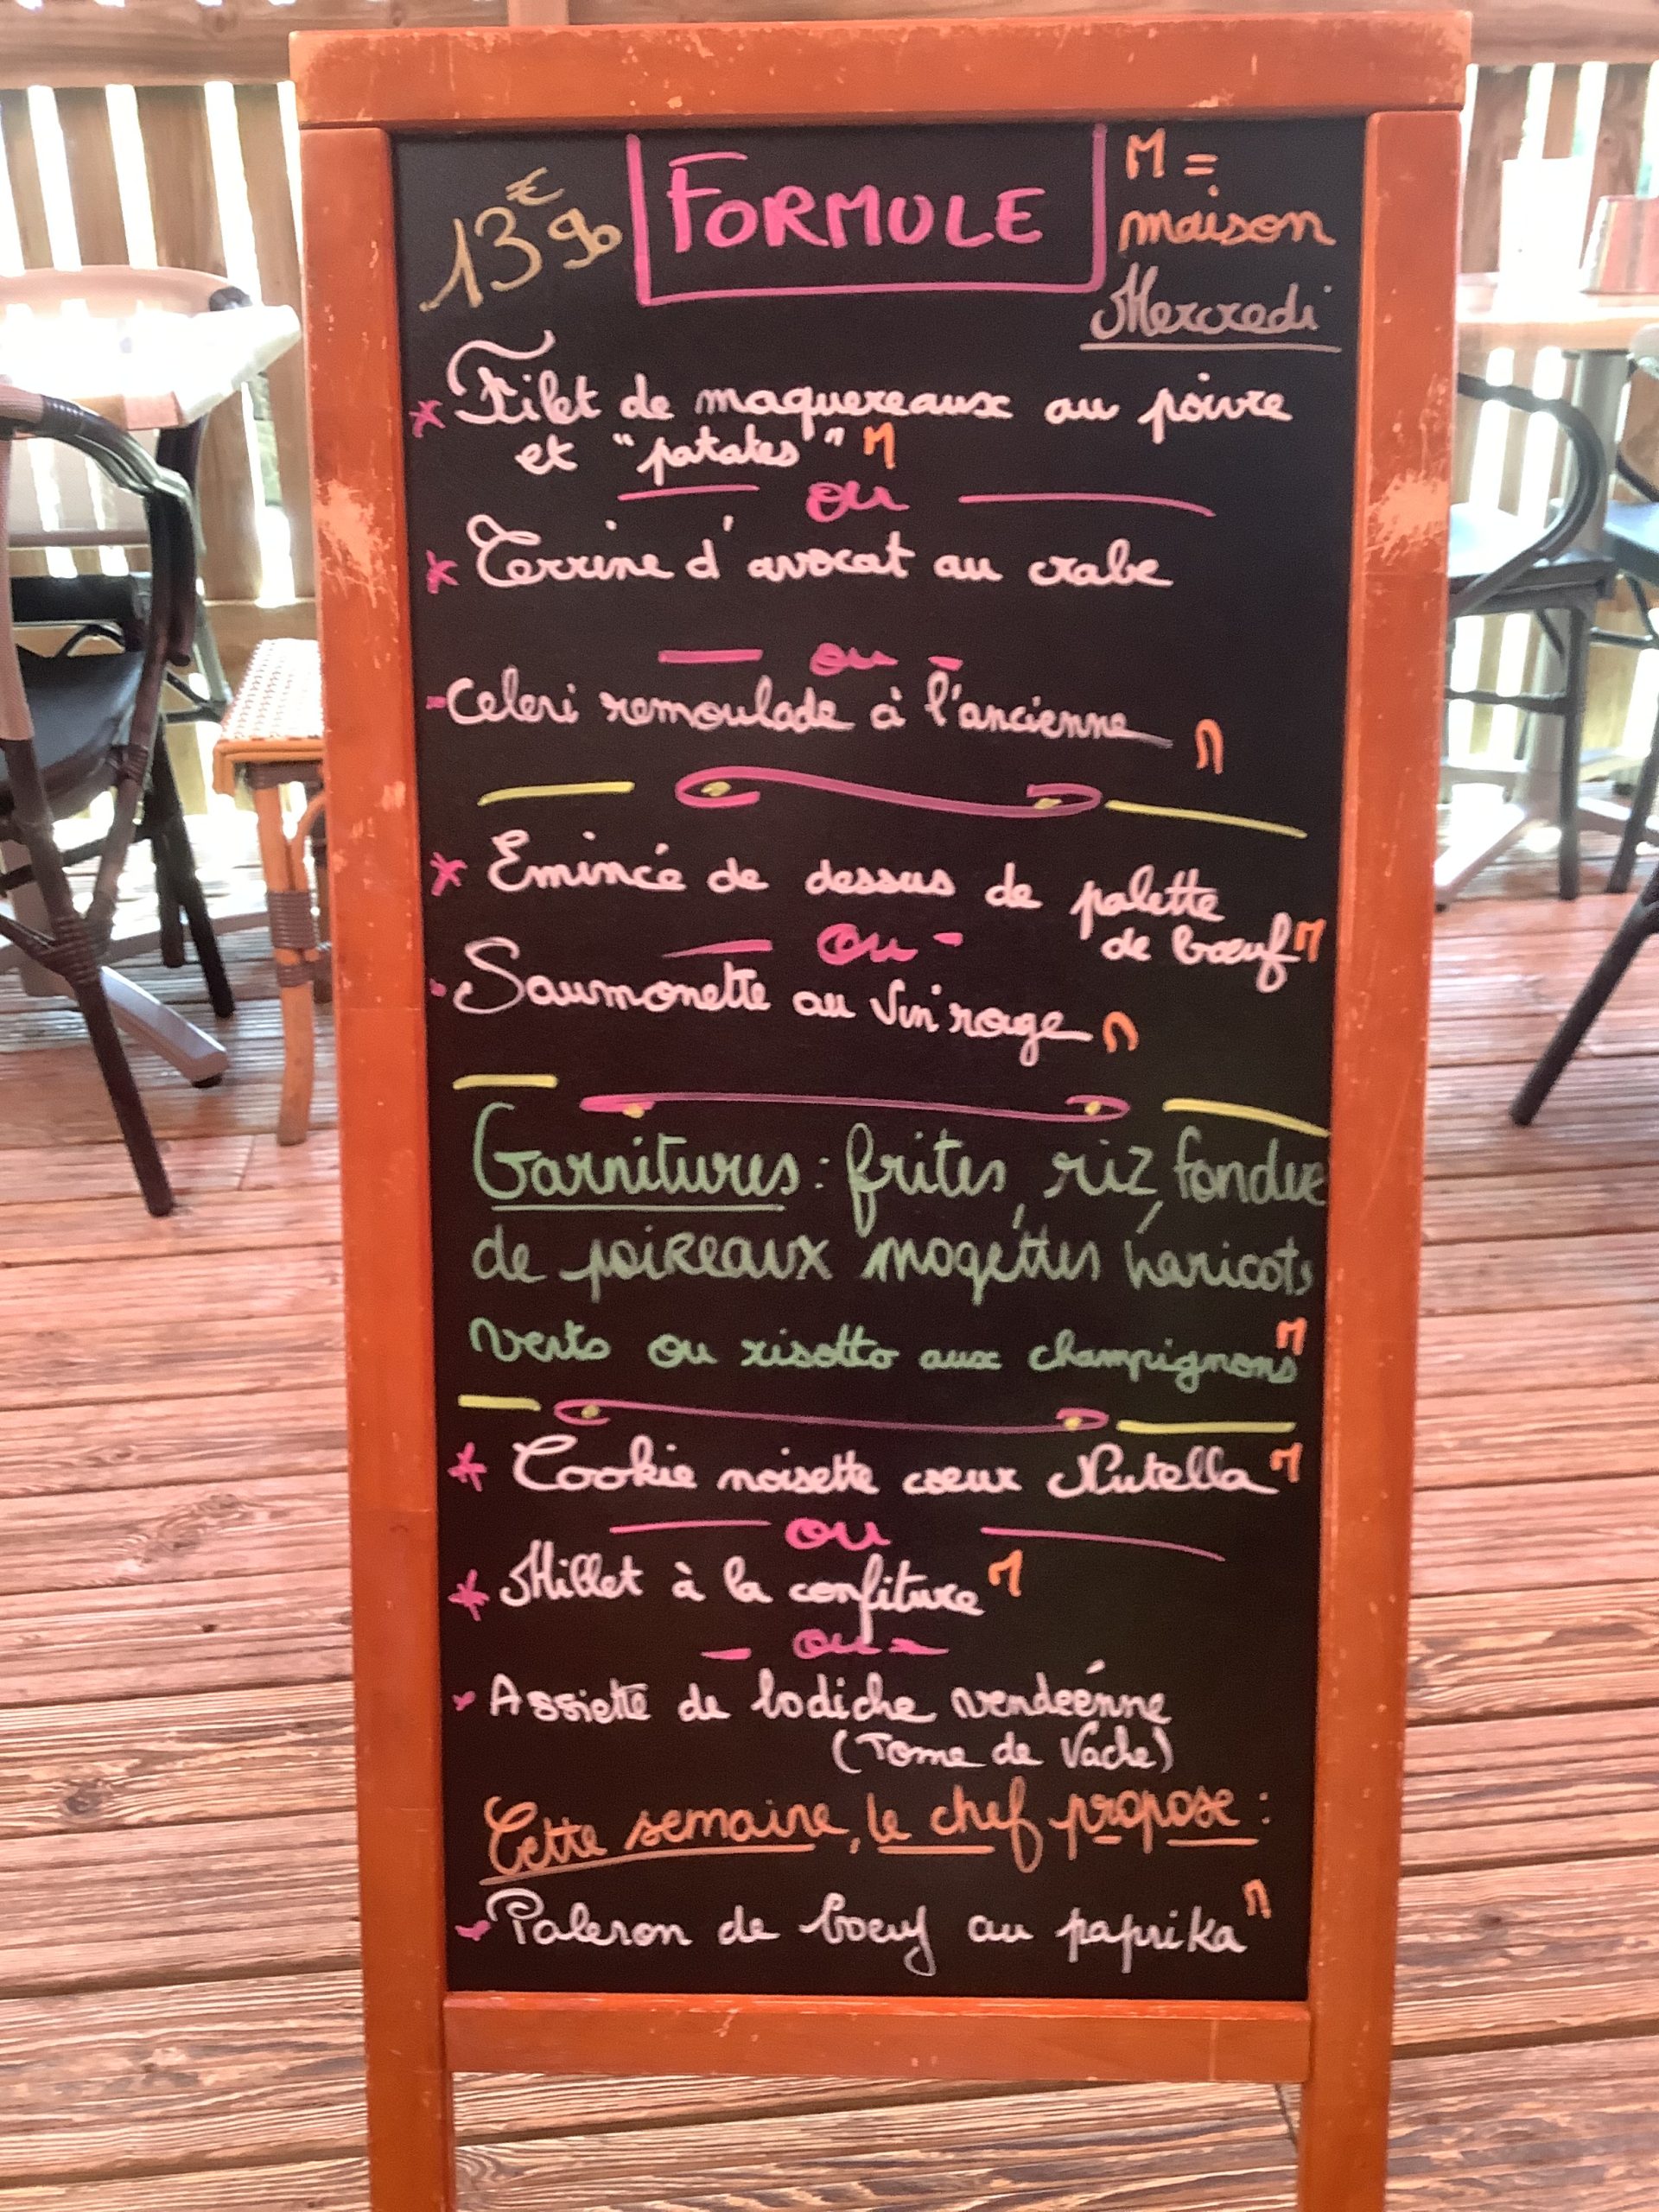 13€90 FORMULE M =
maison
Mercredi
* Filet de maquereaux au poivre
et "patates" M
ou
* Terrine d'avocat au crabe
ou
- Celeri remoulade à l'ancienne M
* Emincé de dessus de palette
de bœuf M
ou
- Saumonette au Vin rouge M
Garnitures : frites, riz, fondue
de poireaux mogettes haricots
verts ou risotto aux champignons M
* Cookie noisette coeur Nutella M
ou
* Millet à la confiture M
ou
* Assiette de lodiche vendéenne
(Tome de Vache)
Cette semaine, le chef propose :
- Paleron de boeuf au paprika M